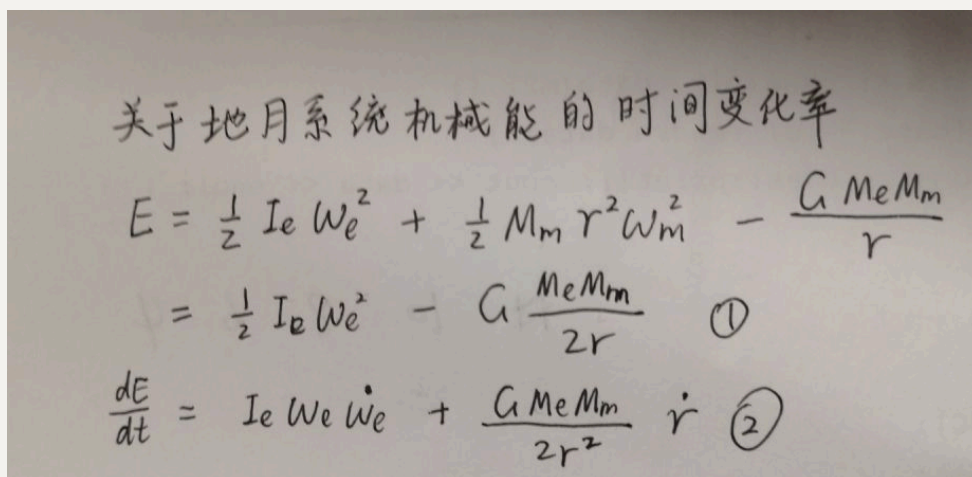 关于地月系统机械能的时间变化率
E = 1/2 Ie ωe² + 1/2 Mm r² ωm² − G Me Mm / r
= 1/2 Ie ωe² − G Me Mm / 2r ①
dE/dt = Ie ωe ω̇e + G Me Mm / 2r² ṙ ②